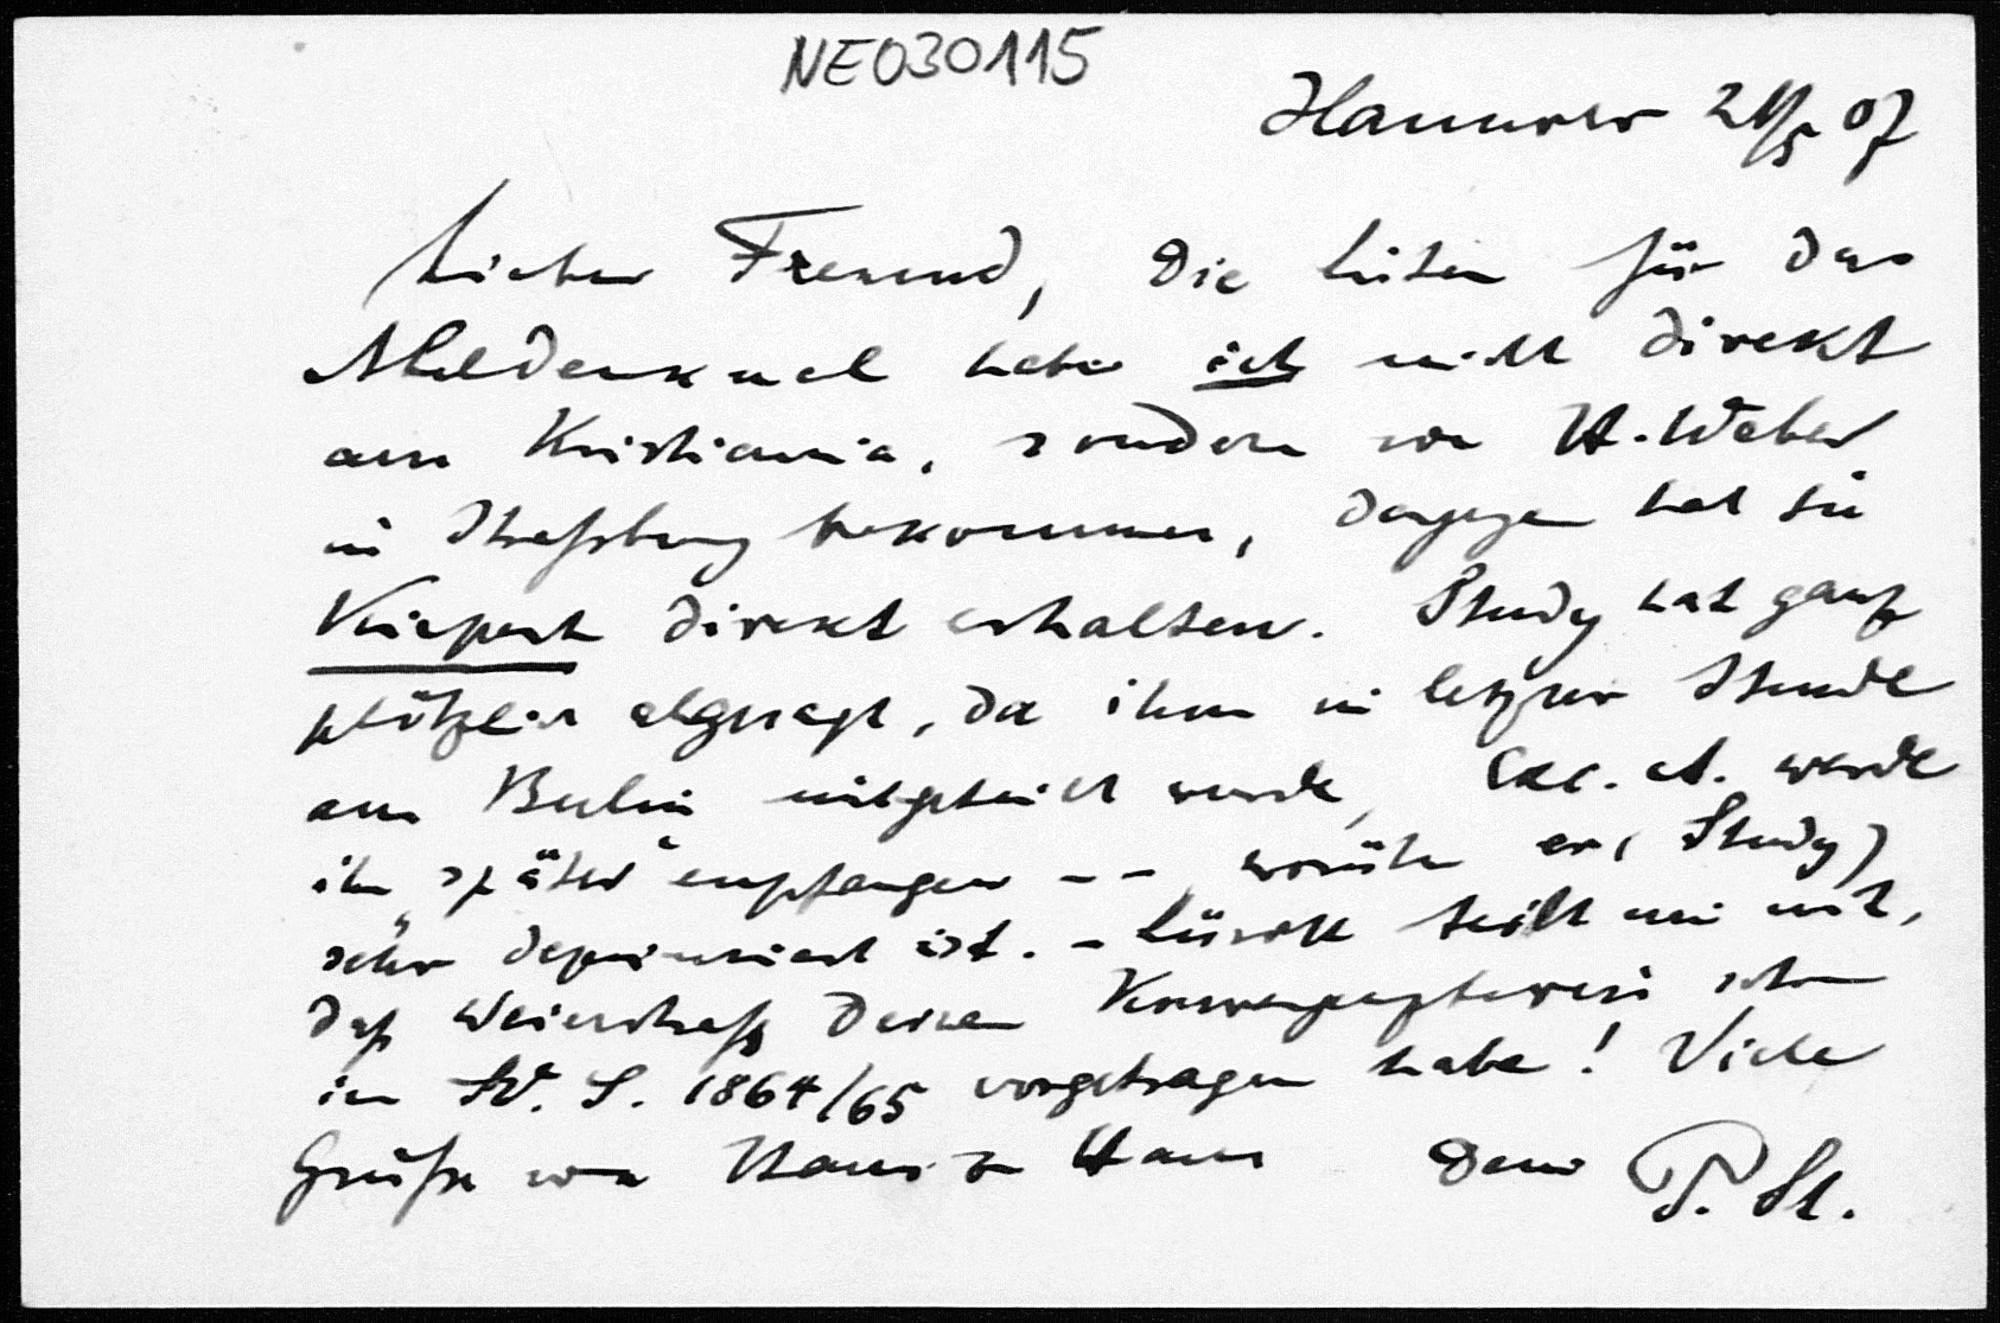 NE030115
Hannover 21/5 07
Lieber Freund, Die Listen für das
Abeldenkmal habe ich nicht direkt
aus Kristiania, sondern von H. Weber
in Straßburg bekommen, dagegen hat sie
Kiepert direkt erhalten. Study hat ganz
plötzlich abgesagt, da ihm in letzter Stunde
aus Berlin mitgeteilt wurde, Exc. A. werde
ihn "später" empfangen -- worüber er (Study)
sehr deprimiert ist. - Lüroth teilt mir mit,
daß Weierstraß Deinen Konvergenzbeweis schon
im W. S. 1864/65 vorgetragen habe! Viele
Grüße von Haus zu Haus Dein P. St.